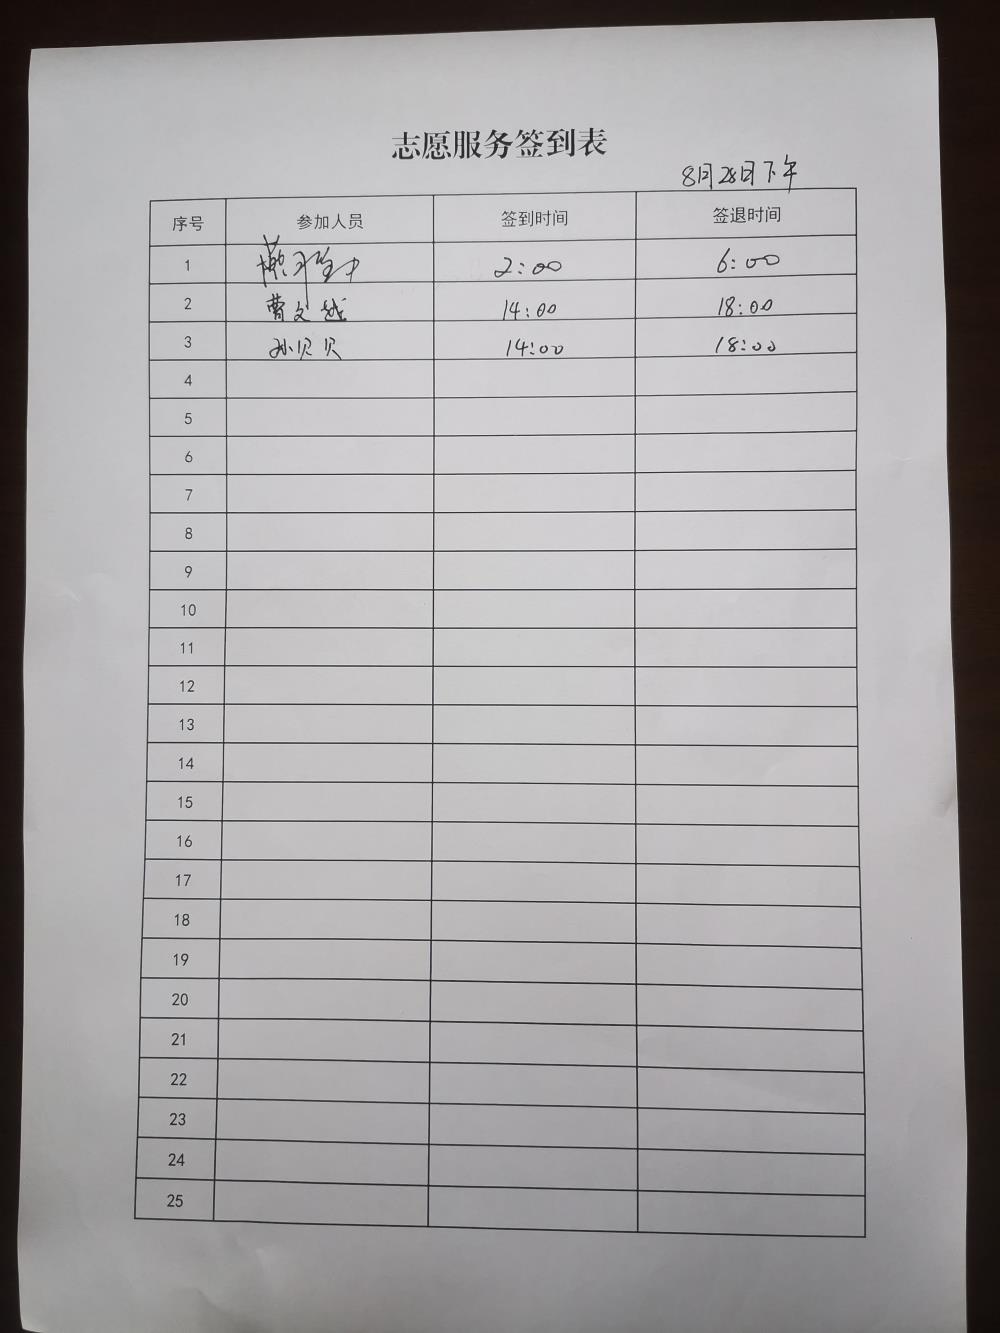 志愿服务签到表
8月28日下午
序号 参加人员 签到时间 签退时间
1 2:00 6:00
2 曹文越 14:00 18:00
3 孙贝贝 14:00 18:00
4
5
6
7
8
9
10
11
12
13
14
15
16
17
18
19
20
21
22
23
24
25